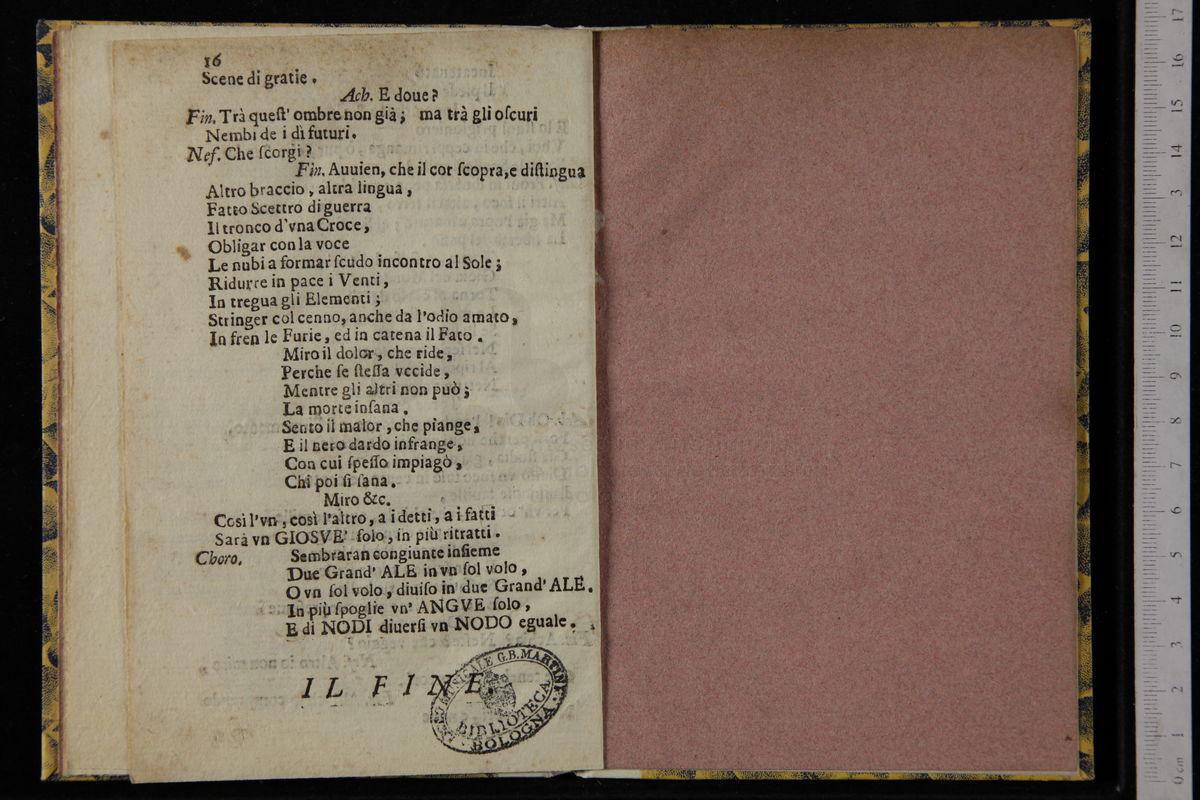 16
Scene di gratie.
Ach. E doue?
Fin. Trà queſt' ombre non già; ma trà gli oſcuri
Nembi de i dì futuri.
Neſ. Che ſcorgi?
Fin. Auuien, che il cor ſcopra, e diſtingua
Altro braccio, altra lingua,
Fatto Scettro di guerra
Il tronco d'vna Croce,
Obligar con la voce
Le nubi a formar ſcudo incontro al Sole;
Ridurre in pace i Venti,
In tregua gli Elementi;
Stringer col cenno, anche da l'odio amato,
In fren le Furie, ed in catena il Fato.
Miro il dolor, che ride,
Perche ſe ſteſſa vccide,
Mentre gli altri non può;
La morte inſana.
Sento il malor, che piange,
E il nero dardo infrange,
Con cui ſpeſſo impiagò,
Chi poi ſi ſana.
Miro &c.
Così l'vn, così l'altro, a i detti, a i fatti
Sarà vn GIOSVE' ſolo, in più ritratti.
Choro. Sembraran congiunte inſieme
Due Grand' ALE in vn ſol volo,
O vn ſol volo, diuiſo in due Grand' ALE.
In più ſpoglie vn' ANGVE ſolo,
E di NODI diuerſi vn NODO eguale.
IL FINE.
MUSICALE G.B. MARTINI
BIBLIOTECA
BOLOGNA
17
16
15
14
13
12
11
10
9
8
7
6
5
4
3
2
1
0 cm